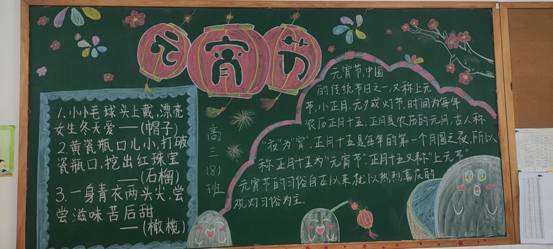 元宵节
1.小小毛球头上戴,漂亮
女生冬天爱——(帽子)
2.黄瓷瓶口儿小,打破
瓷瓶口,挖出红珠宝
——(石榴)
3.一身青衣两头尖,尝
尝滋味苦后甜
——(橄榄)
高三(8)班
元宵节,中国
的传统节日之一,又称上元
节,小正月,元夕或灯节,时间为每年
农历正月十五,正月是农历的元月,古人称
"夜"为"宵",正月十五是每年的第一个月圆之夜,所以
称正月十五为"元宵节",正月十五又称"上元节"
元宵节的习俗自古以来就以热烈喜庆的
观灯习俗为主.